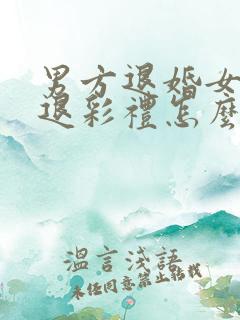 男方退婚女
退彩禮怎麼
溫言淺語
未经同意禁止转载